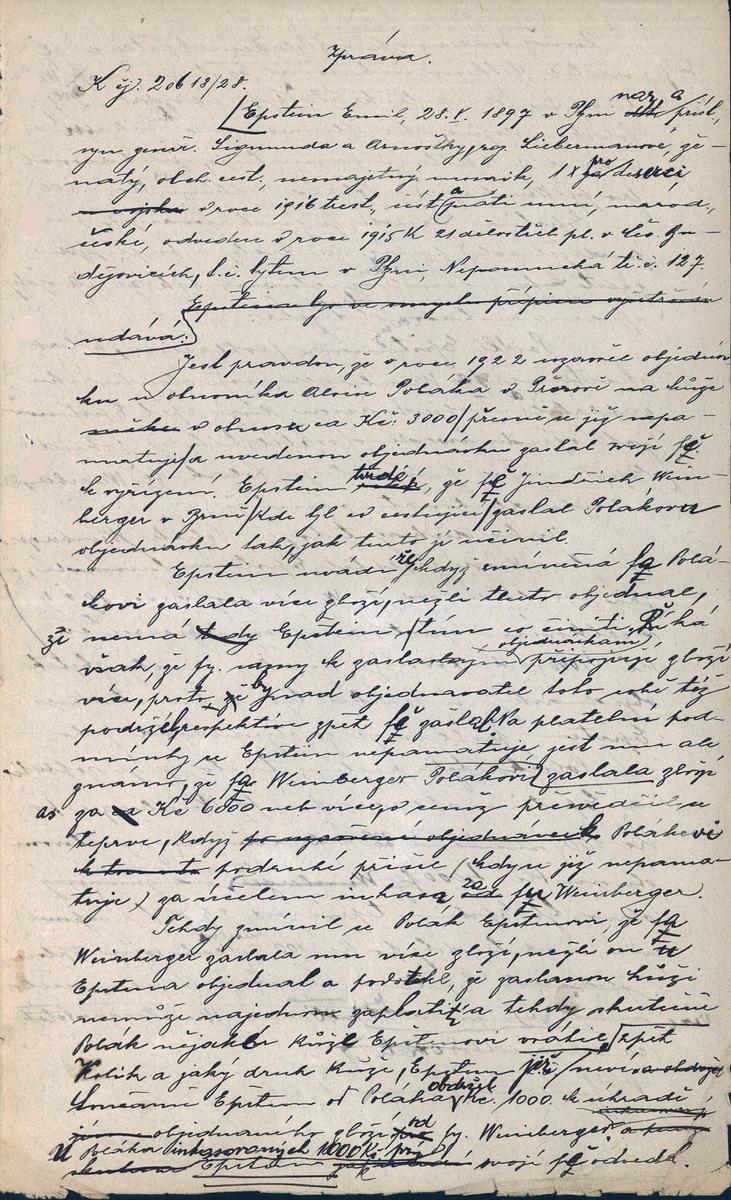 Zpráva.
K čj. 206 18/28.
Epstein Emil, 28.V. 1897 v Plzni nar. a přísl.,
syn genér. Sigmunda a Arnoštky, roz. Liebermanové, že-
natý, obch. cest., nemajetný, mosaik, 1x pro deserci
v roce 1916 trest., číst a psáti umí, národ.
české, odveden v roce 1915 k 21 dělostřel. pl. v Čes. Bu-
dějovicích, t.č. bytem v Plzni, Nepomucká tř. č. 127.
Epstein byv ve smyslu přípisu vyšetřován
udává:
Jest pravdou, že v roce 1922 uzavřel objednáv-
ku u obuvníka Aloise Poláka v Přerově na kůže
v obnosu ca Kč. 3000 / přesně se již nepa-
matuje / a uvedenou objednávku zaslal svojí fě.
k vyřízení. Epstein tvrdí, že fě Jindřich Wein-
berger v Brně / kde byl co cestující / zaslal Polákovu
objednávku tak, jak tento ji učinil.
Epstein uvádí, že když zmíněná fa Polá-
kovi zaslala více zboží, nežli tento objednal,
že nemá Epstein s tím co činiti. Říká
však, že fy. k zaslaným objednávkám připojují zboží
více, proto by snad objednavatel toto sobě též
podržel, respektive zpět fě zaslal. Na platební pod-
mínky se Epstein nepamatuje, jest mu ale
známo, že fa Weinberger Polákovi zaslala zboží
za as Kč 6000 neb více, o čemž přesvědčil se
teprve, když Polákovi
podruhé přišel / kdy se již nepama-
tuje / za účelem inkasa za fu Weinberger.
Tehdy zmínil se Polák Epsteinovi, že fa
Weinberger zaslala mu více zboží, nežli on u
Epsteina objednal a podotekl, že zaslanou kůži
nemůže najednou zaplatiti a tehdy skutečně
Polák nějaké kůže Epsteinovi vrátil zpět.
Kolik a jaký druh kůže, Epstein již neví
Současně Epstein od Poláka obdržel Kč. 1000. k úhradě
objednaného zboží od fy. Weinberger
U Poláka inkasovaných 1000 Kč prý
Epstein svojí fě odvedl.